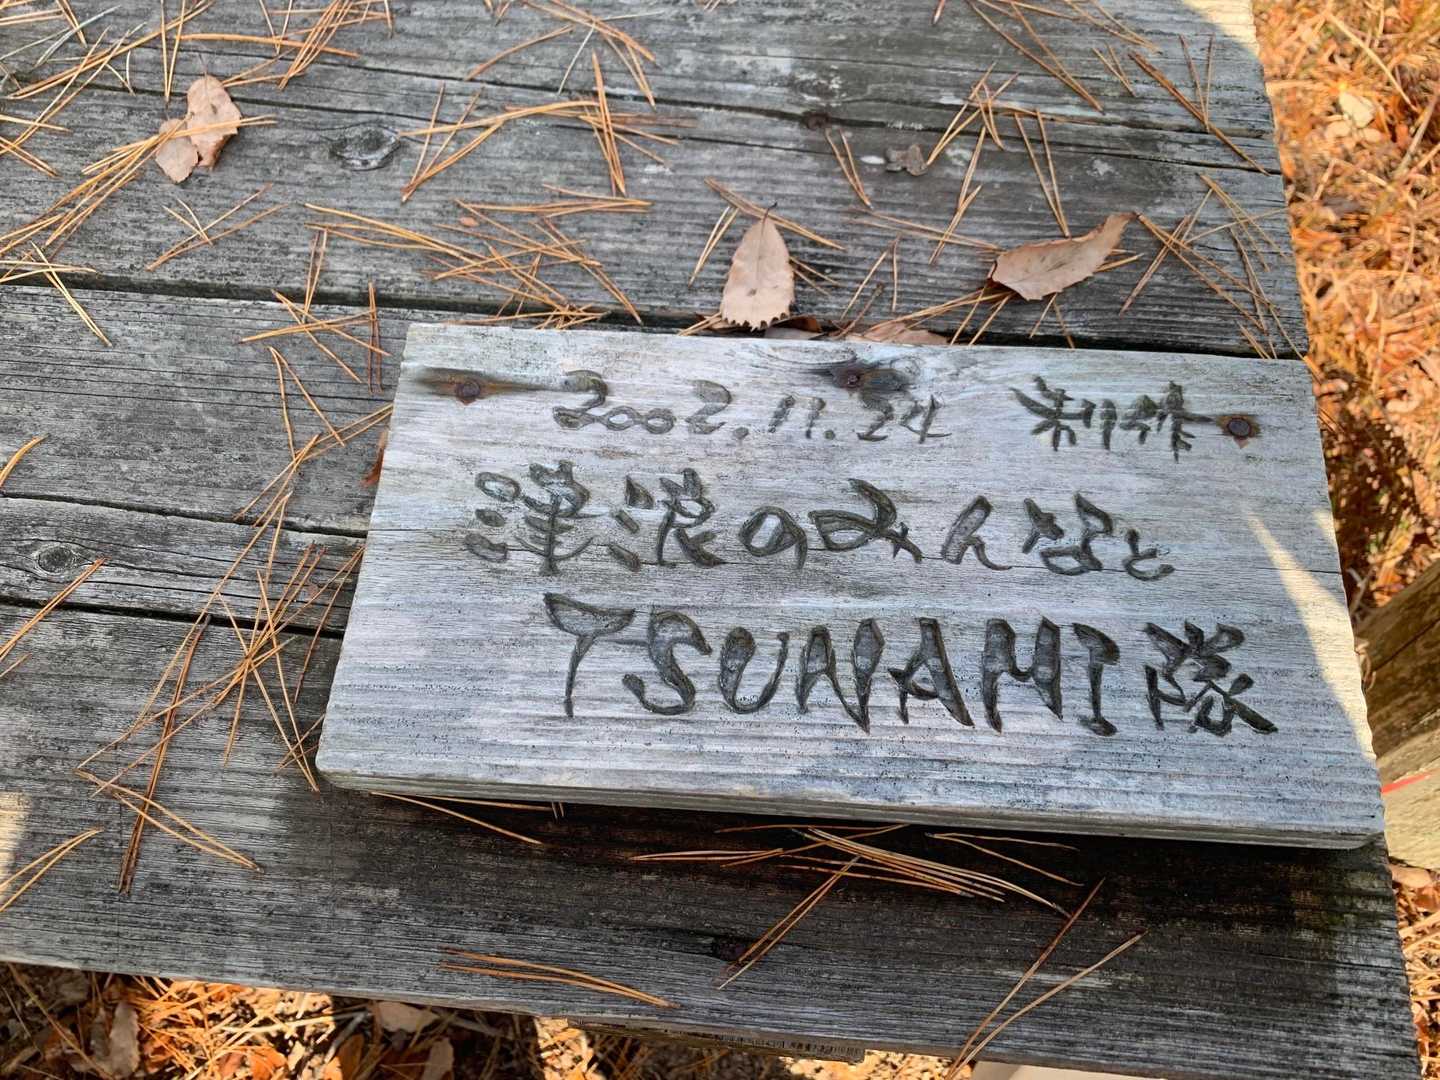 2002.11.24 制作
津浪のみんなと
TSUNAMI隊